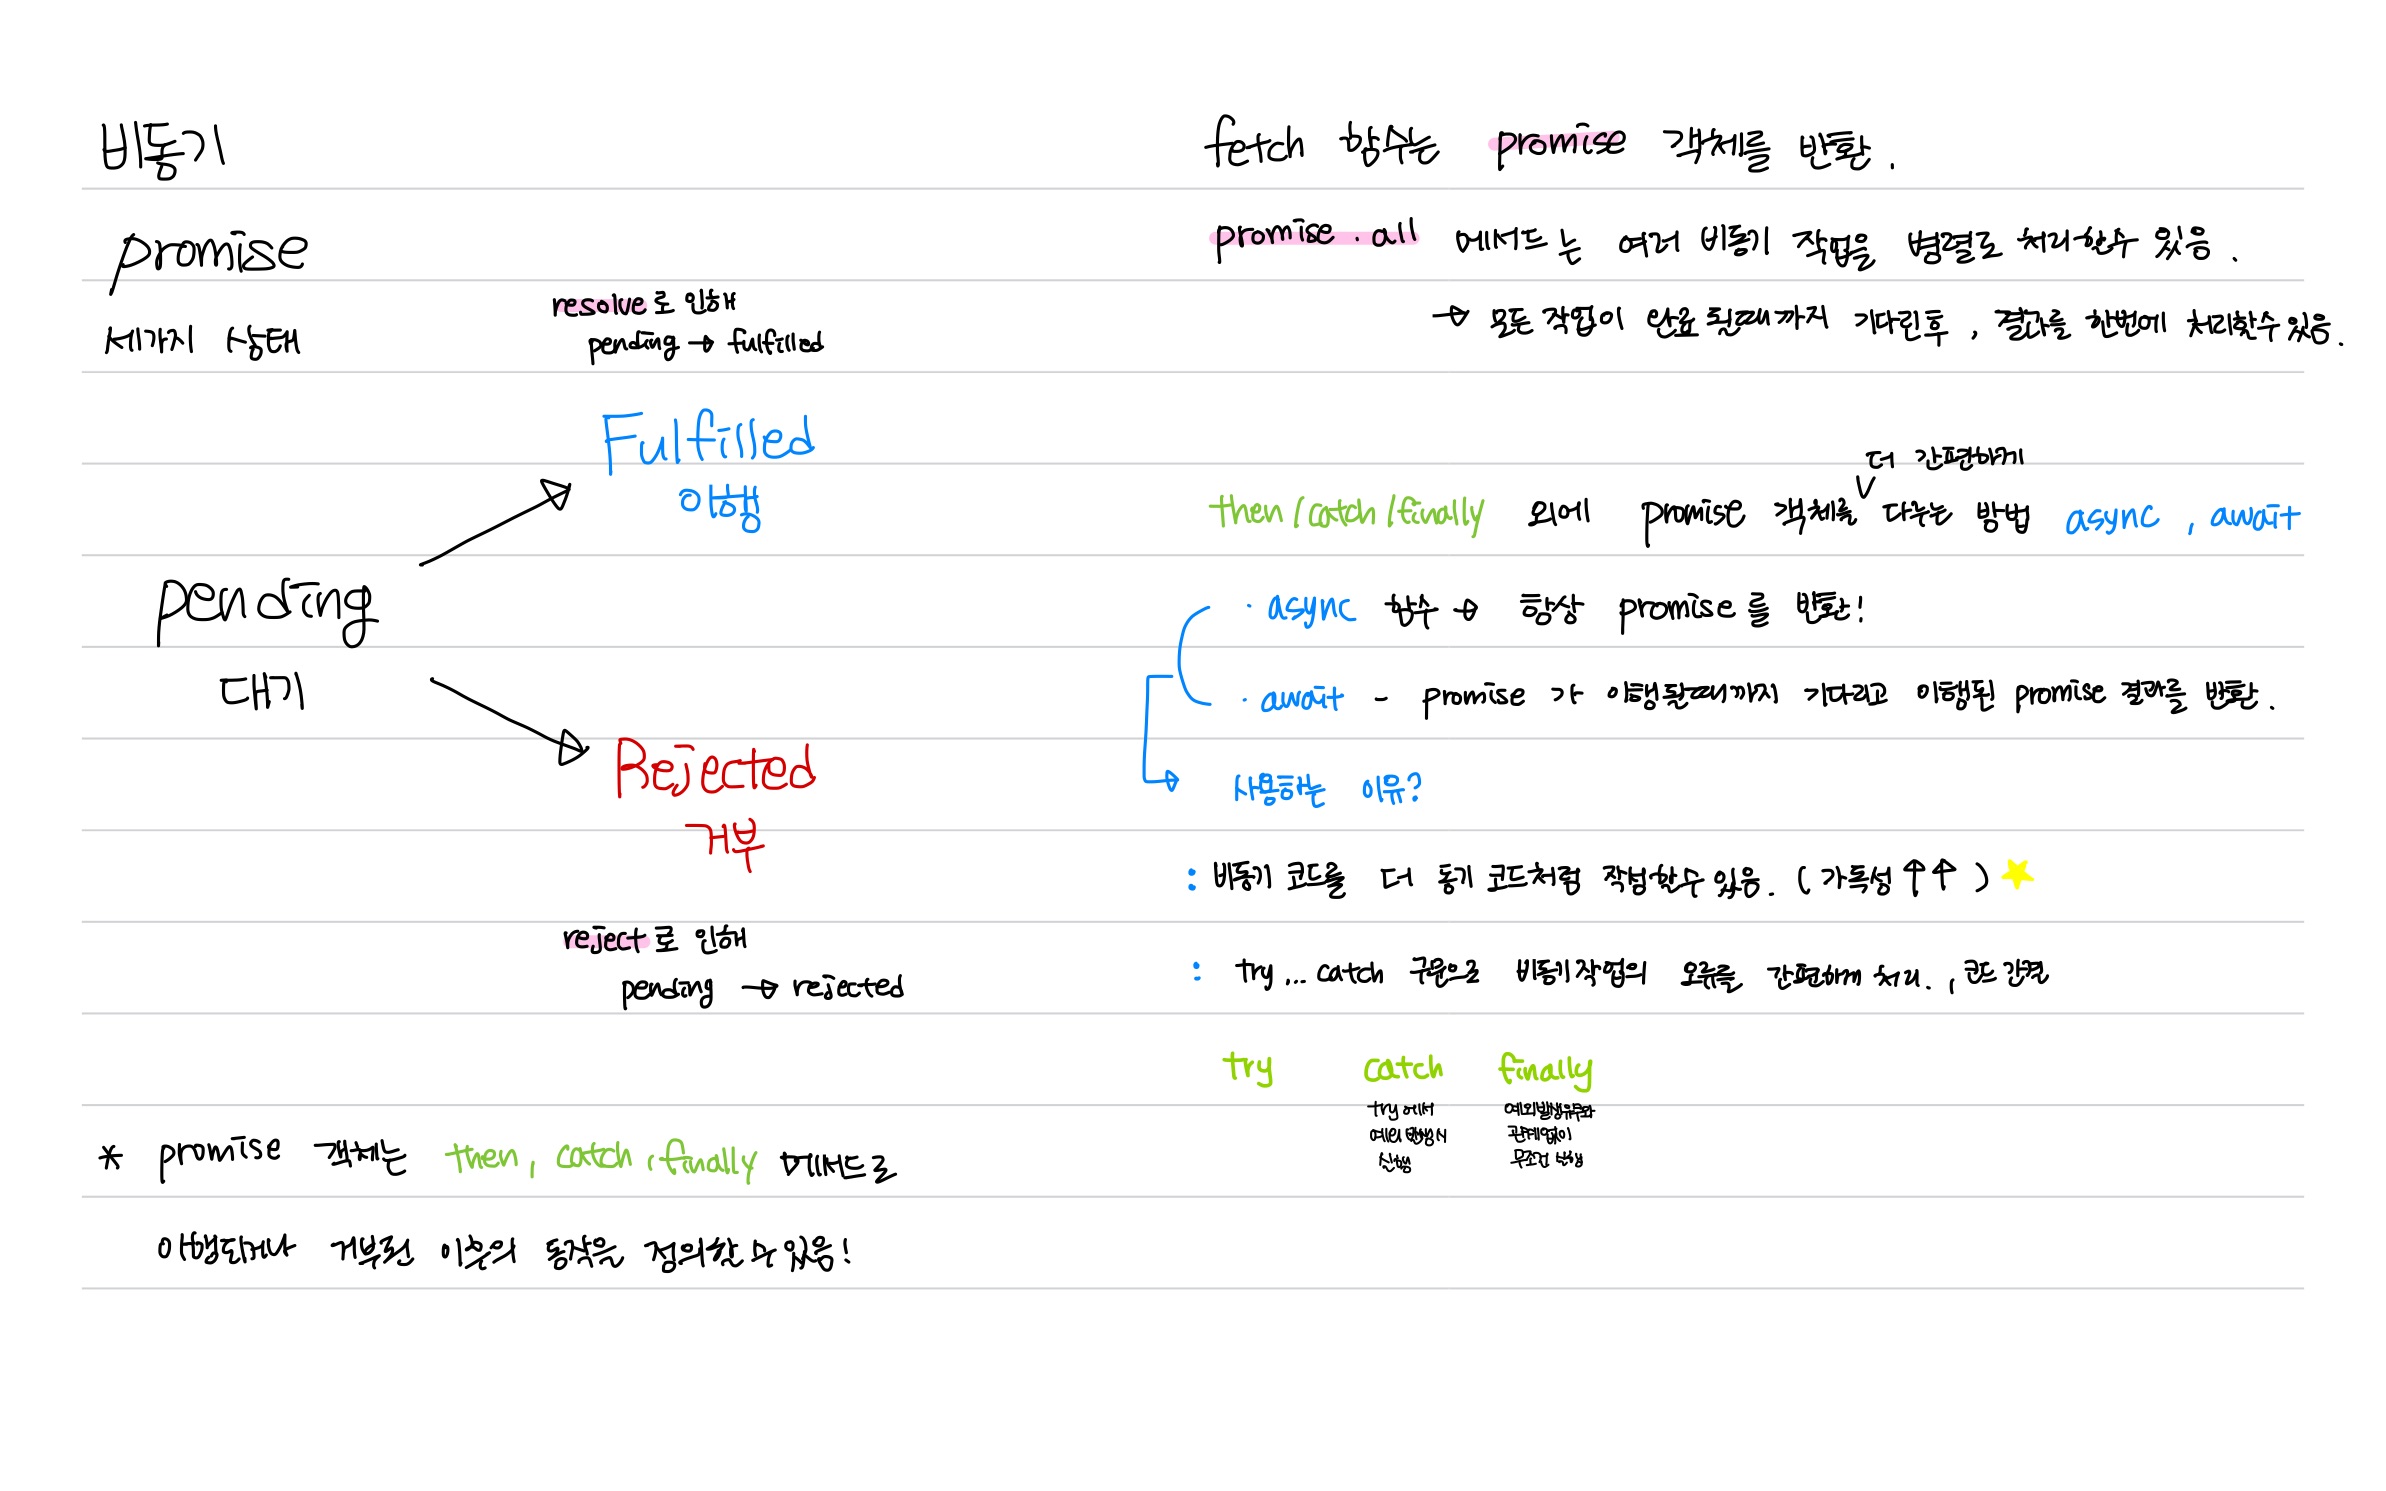 비동기
promise
세가지 상태
resolve로 인해
pending → fulfilled
Fulfilled
이행
pending
대기
Rejected
거부
reject로 인해
pending → rejected
* promise 객체는 then, catch, finally 메서드로
이행되거나 거부된 이후의 동작을 정의할 수 있음!
fetch 함수는 promise 객체를 반환.
promise.all 메서드는 여러 비동기 작업을 병렬로 처리할수 있음.
→ 모든 작업이 완료될때까지 기다린후, 결과를 한번에 처리할수있음.
더 간편하게
then/catch/finally 외에 promise 객체를 ∨ 다루는 방법 async, await
· async 함수 → 항상 promise를 반환!
· await - promise가 이행될때까지 기다리고 이행된 promise 결과를 반환.
사용하는 이유?
: 비동기 코드를 더 동기 코드처럼 작성할수 있음. (가독성 ↑↑) ★
: try...catch 구문으로 비동기작업의 오류를 간편하게 처리., 코드 간결
try catch finally
try에서
예외 발생시
실행
예외발생유무와
관계없이
무조건 실행